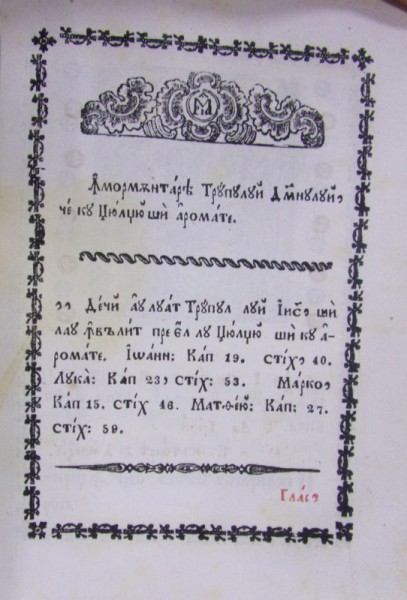 М
Ꙟмормѫнта́рѣ Трꙋ́пꙋлꙋй Дм҃нꙋлꙋй
че кꙋ Џїꙋлџїꙋ ши а҆рома́те.
Де́чй аꙋ лꙋа́т Трꙋ́пꙋл лꙋй Іи҃с ши
лаꙋ ꙟвъли́т пре є҆л лꙋ Џїꙋлџїꙋ ши кꙋ а҆-
рома́те. Іѡа́нн: Ка́п 19. Сті́х 40.
Лꙋка̀: Ка́п 23, Сті́х: 53. Ма́рко
Ка́п 15. Сті́х 46. Матѳе́ю: Ка́п: 27.
Сті́х: 59.
Гла́с